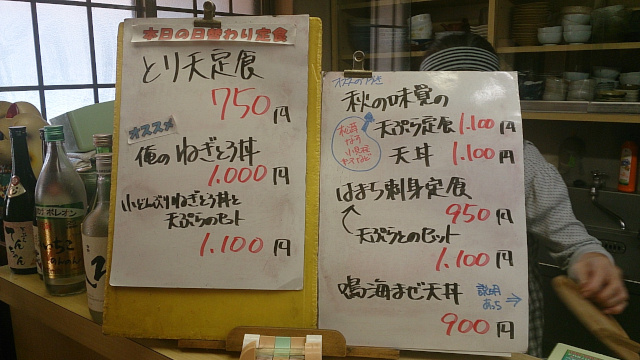 本日の日替わり定食
とり天定食
750円
オススメ
俺のねぎとろ丼
1.000円
小どんぶりねぎとろ丼と
天ぷらのセット
1.100円
秋の味覚の
天ぷら定食 1.100円
天丼 1.100円
はまち刺身定食
950円
天ぷらとのセット
1.100円
鳴海まぜ天丼
説明
あっち
900円
いいちこ